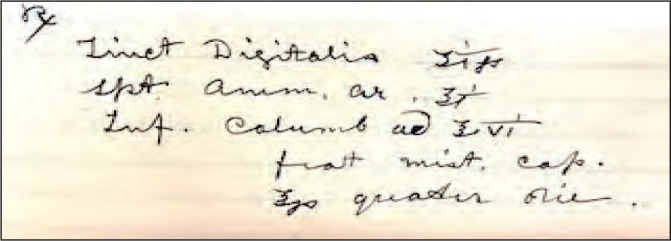 ℞
Tinct Digitalis ʒiſs
Spt. Amm. ar. ʒi
Inf. Columb ad ℥vi
fiat mist. cap.
℥ſs quater die.